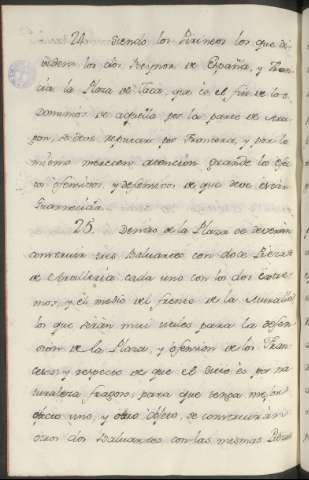 24. Siendo los Pirineos los que di-
viden los dos Reynos de España, y Fran-
cia la Plaza de Jaca, que es el fin de los
Dominios de aquella por la parte de Ara-
gon, se debe reputar por Frontera, y por lo
mismo merecen atencion grande los efec-
tos ofensivos, y defensivos de que deve estar
Guarnecida.
25. Dentro de la Plaza se deverán
construir seis Baluartes con doce Piezas
de Artilleria cada uno con los dos extre-
mos, y el medio del frente de la Muralla
lo que serán mui utiles para la defen-
sion de la Plaza, y ofension de los Fran-
ceses; y respecto de que el Sitio es por na-
turaleza fragoso, para que tenga mejor
efecto uno, y otro objeto, se construirán
otros dos Baluartes con las mismas Piezas